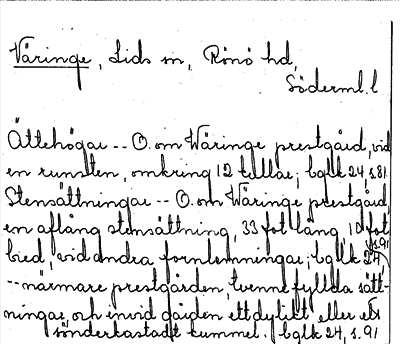 Väringe, Lids sn, Rönö hd,
Söderml. l
Ättehögar -- O. om Wäringe prestgård, vid
en runsten, omkring 12 tullar; bglk 24, s. 81
Stensättningar -- O. om Wäringe prestgård,
en aflång stensättning, 33 fot lång, 10 fot
bred, vid andra fornlemningar; bglk 24,
s. 91
-- närmare prestgården, tvenne fyllda sätt-
ningar, och invid gården ett dylikt eller ett
sönderkastadt kummel. bglk 24, s. 91